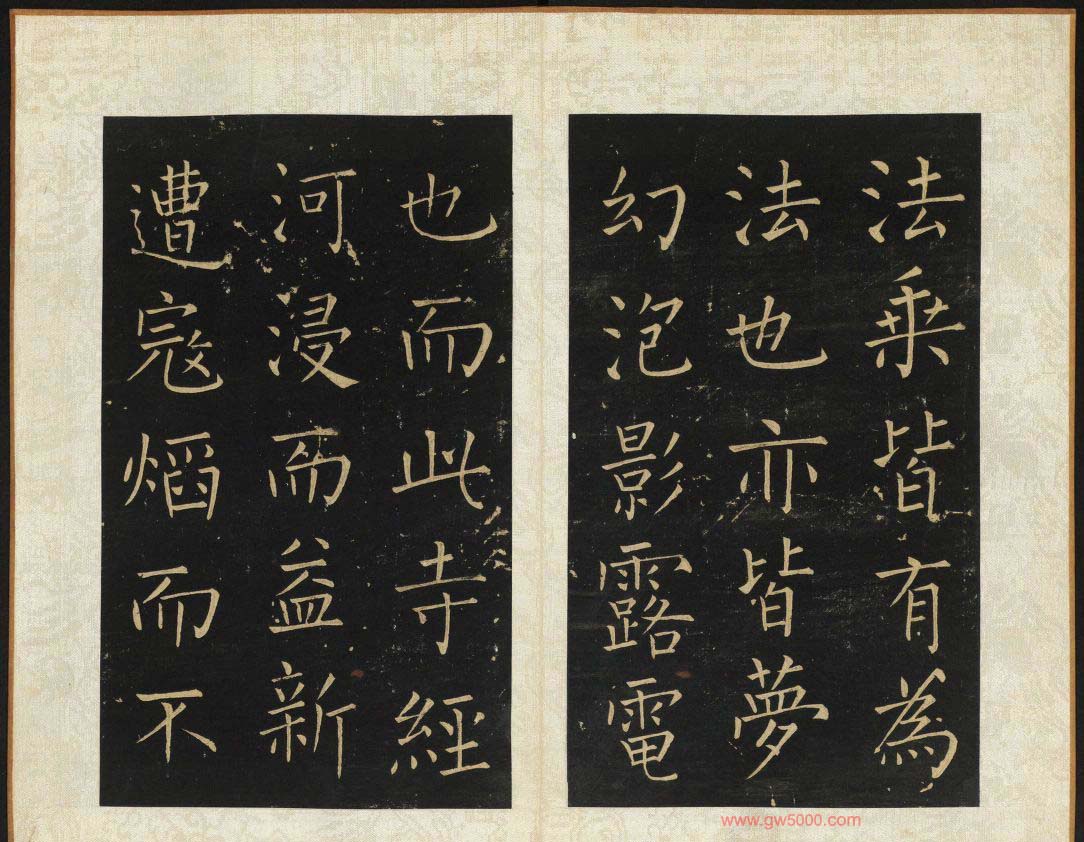 法乗皆有為
法也亦皆夢
幻泡影露電
也而此寺經
河浸而益新
遭寇熖而不
www.gw5000.com